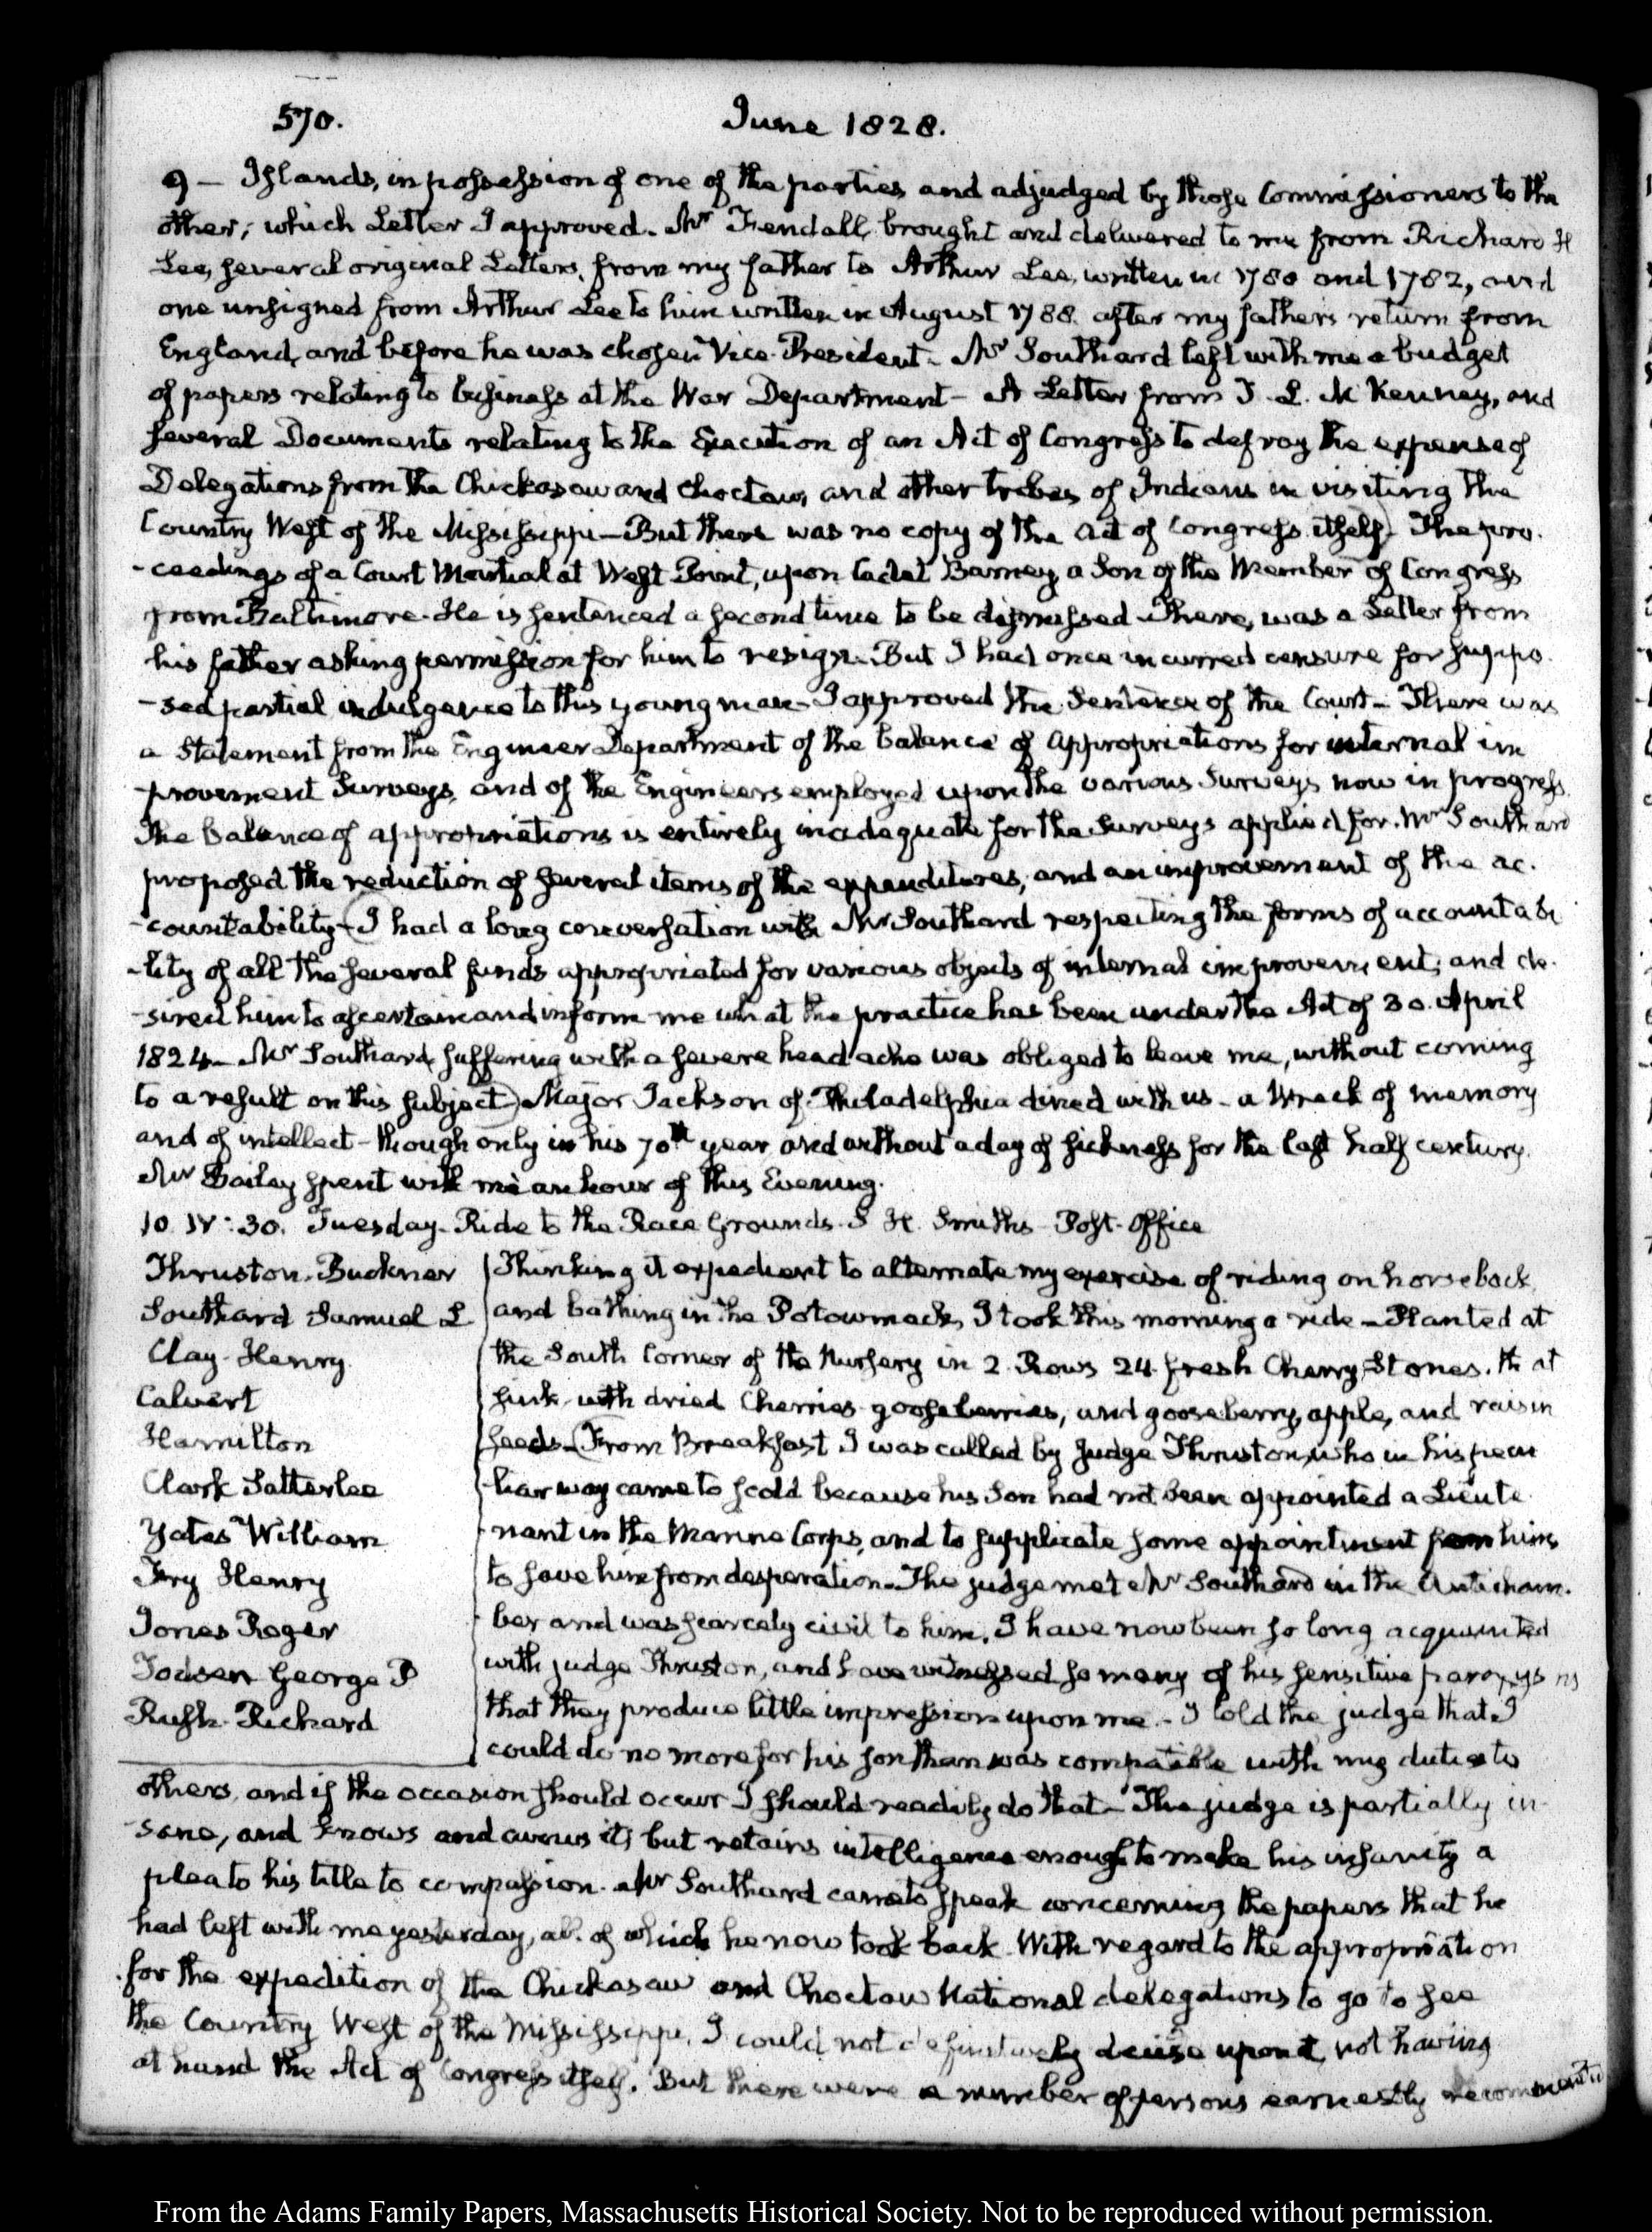 570.
June 1828.
9 — Islands, in possession of one of the parties and adjudged by those Commissioners to the
other; which Letter I approved. Mr Fendall brought and delivered to me from Richard H
Lee, several original Letters, from my father to Arthur Lee, written in 1780 and 1782, and
one unsigned from Arthur Lee to him written in August 1788. after my fathers return from
England, and before he was chosen Vice-President. Mr Southard left with me a budget
of papers relating to business at the War Department — A Letter from T. L. McKenney, and
several Documents relating to the Execution of an Act of Congress to defray the expense of
Delegations from the Chickasaw and Choctaw, and other tribes of Indians in visiting the
Country West of the Mississippi — But there was no copy of the Act of Congress itself) The pro-
-ceedings of a Court Martial at West-Point, upon Cadet Barney, a Son of the Member of Congress
from Baltimore. He is sentenced a second time to be dismissed. There, was a Letter from
his father asking permission for him to resign. But I had once incurred censure for suppo-
-sed partial indulgence to this young man. I approved the Sentence of the Court — There was
a Statement from the Engineer Department of the balance of appropriations for internal im
-provement Surveys, and of the Engineers employed upon the various Surveys now in progress.
The balance of appropriations is entirely inadequate for the Surveys applied for. Mr Southard
proposed the reduction of several items of the expenditures, and an improvement of the ac-
-countability — (I had a long conversation with Mr Southard respecting the forms of accountabi
-lity of all the several funds appropriated for various objects of internal improvement; and de-
-sired him to ascertain and inform me what the practice has been under the Act of 30. April
1824 — Mr Southard, suffering with a severe head ache was obliged to leave me, without coming
to a result on this subject) Major Jackson of Philadelphia dined with us — a Wreck of memory
and of intellect — though only in his 70th year and without a day of sickness for the last half century.
Mr Bailey spent with me an hour of this Evening.
10. IV:30. Tuesday. Ride to the Race Grounds. S. H. Smith's — Post-Office
Thruston. Buckner
Southard Samuel L
Clay Henry
Calvert
Hamilton
Clark Satterlee
Yates William
Fry Henry
Jones Roger
Todsen George P
Rush Richard
Thinking it expedient to alternate my exercise of riding on horseback,
and bathing in the Potowmack, I took this morning a ride — Planted at
the South Corner of the Nursery in 2. Rows 24 fresh Cherry Stones. th at
with dried Cherries gooseberries, and gooseberry, apple, and raisin
seeds — (From Breakfast I was called by Judge Thruston, who in his pecu
-liar way came to scold because his Son had not been appointed a Lieute
-nant in the Marine Corps, and to supplicate some appointment from him
to save him from desperation. The judge met Mr Southard in the Anticham-
-ber and was scarcely civil to him. I have now been so long acquainted
with judge Thruston, and have witnessed so many of his sensitive paroxysms
that they produce little impression upon me — I told the judge that I
could do no more for his son than was compatible with my duties to
others, and if the occasion should occur I should readily do that — The judge is partially in-
-sane, and knows and avows it; but retains intelligence enough to make his insanity a
plea to his title to compassion. Mr Southard came to speak concerning the papers that he
had left with me yesterday, all of which he now took back. With regard to the appropriation
for the expedition of the Chickasaw and Choctaw National delegations to go to see
the Country West of the Mississippi, I could not definitively decide upon it, not having
at hand the Act of Congress itself. But there were a number of persons earnestly
From the Adams Family Papers, Massachusetts Historical Society. Not to be reproduced without permission.